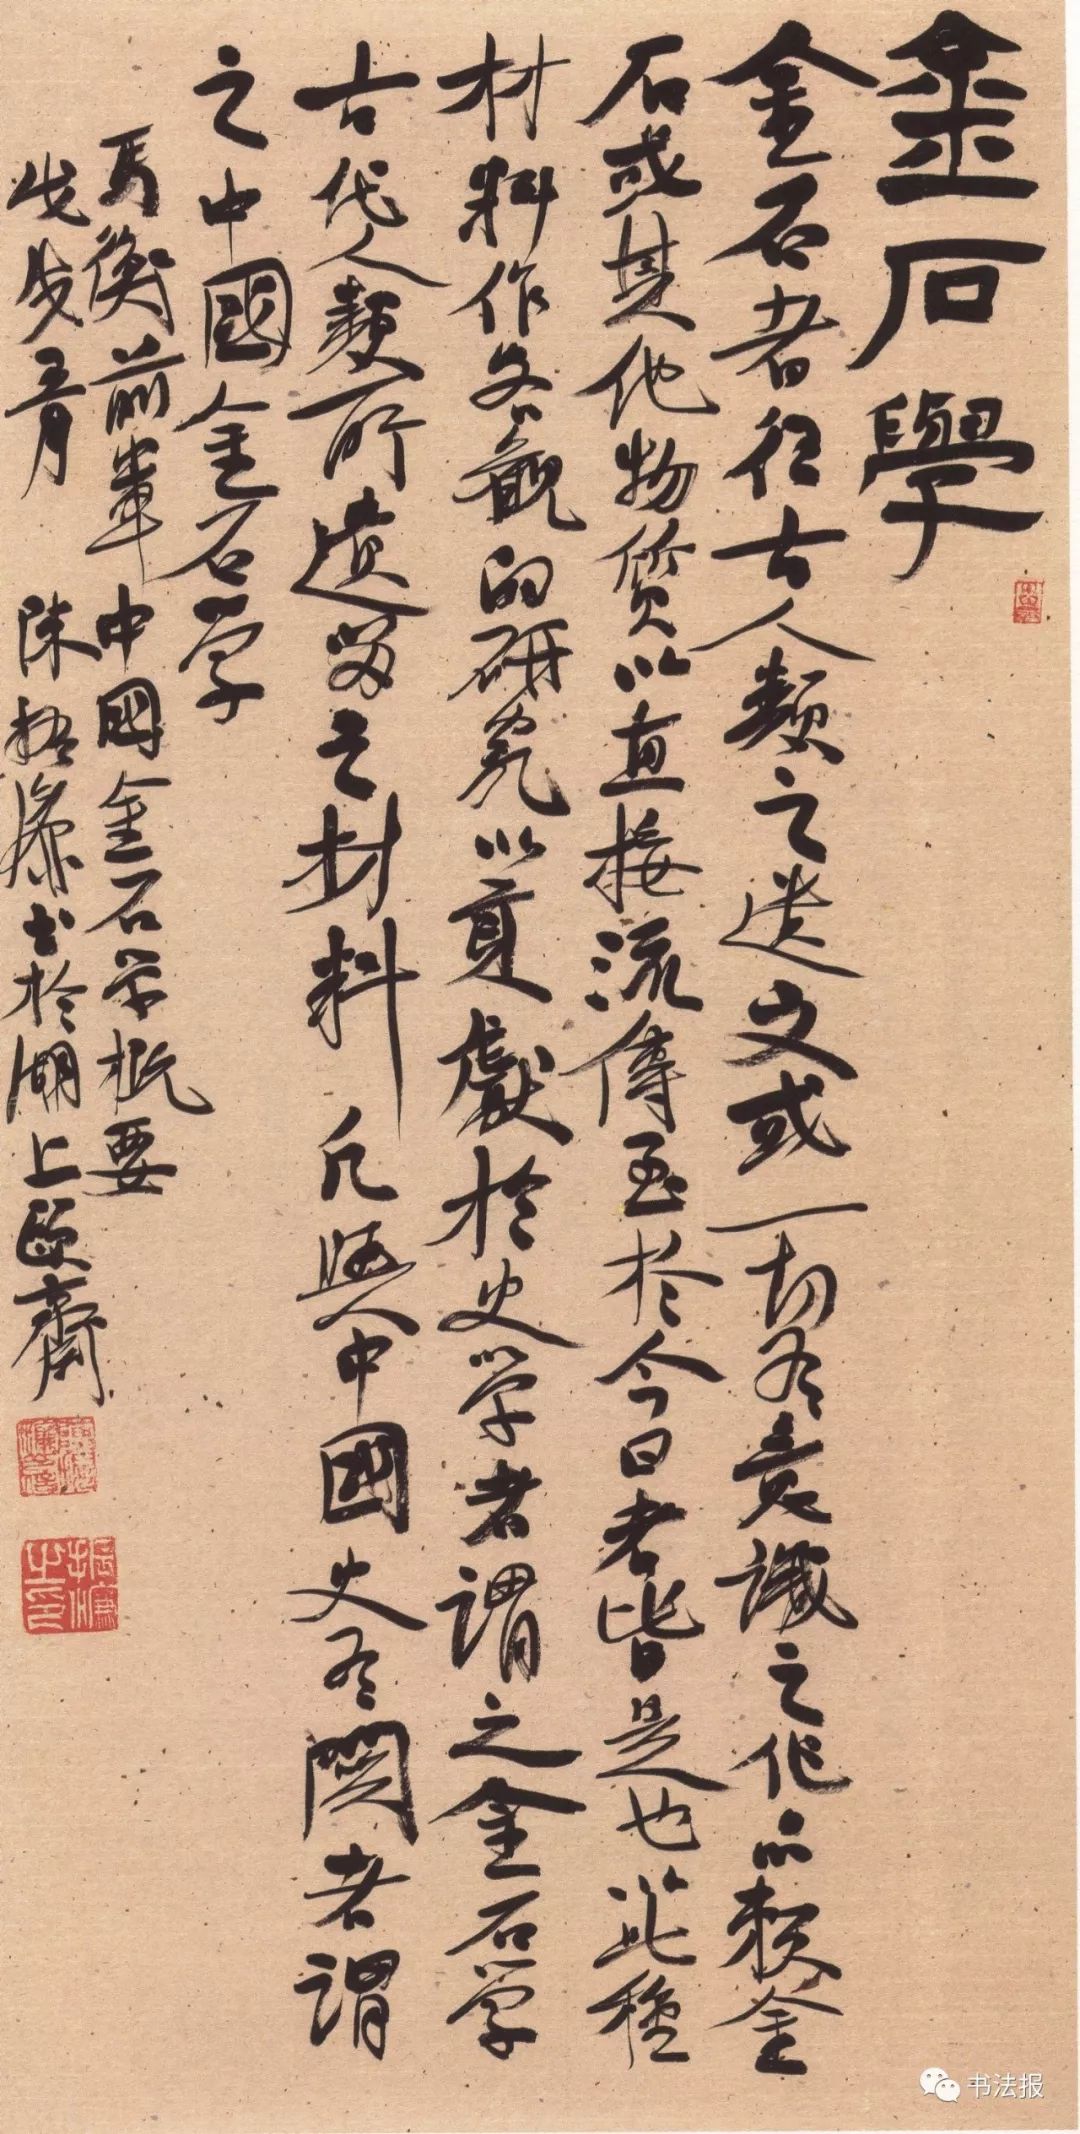 金石學
金石者往古人類之遺文或一切有意識之作品賴金
石或其他物质以直接流傳至於今日者皆是也此種
材料作客觀的研究以貢獻於史学者謂之金石学
古代人類所遺留之材料凡與中國史有關者謂
之中國金石学
馬衡前輩中國金石学概要
戊戌五月 陳振濂书於湖上頤齋
振濂之印
书法报